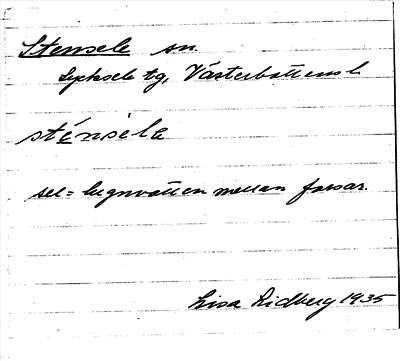 Stensele sn.
Lycksele tg, Västerbottens l.
sténsèla
sel = lugnvatten mellan forsar.
Lisa Lidberg 1935